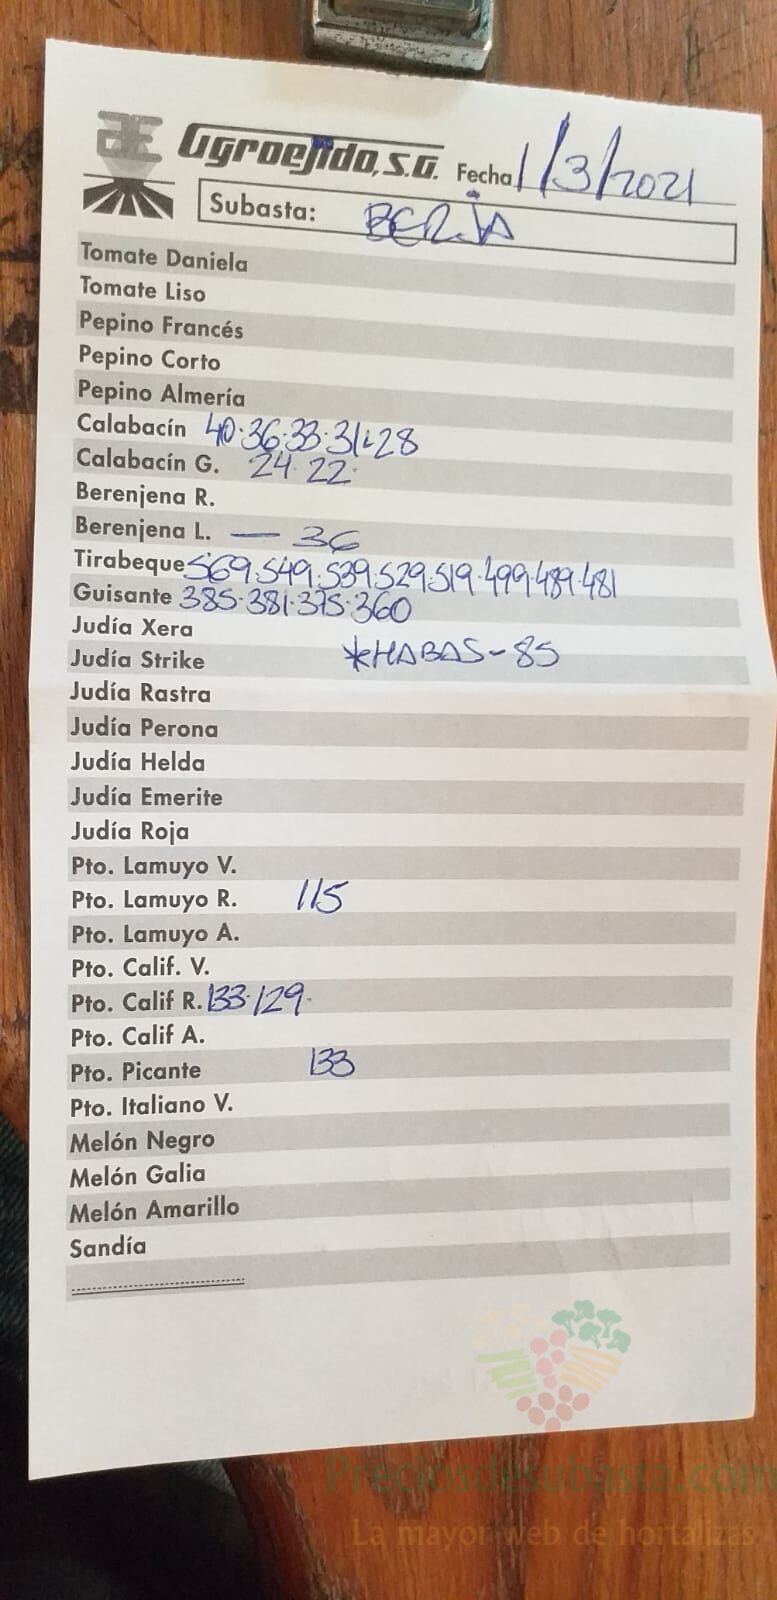 Agroejido, S.A. Fecha 1/3/2021
Subasta: BERJA
Tomate Daniela
Tomate Liso
Pepino Francés
Pepino Corto
Pepino Almería
Calabacín 40·36·33·31·28
Calabacín G. 24·22·
Berenjena R.
Berenjena L. — 36
Tirabeque 569·549·539·529·519·499·489·481
Guisante 385·381·375·360
Judía Xera
Judía Strike *HABAS-85
Judía Rastra
Judía Perona
Judía Helda
Judía Emerite
Judía Roja
Pto. Lamuyo V.
Pto. Lamuyo R. 115
Pto. Lamuyo A.
Pto. Calif. V.
Pto. Calif R. 133·129·
Pto. Calif A.
Pto. Picante 133
Pto. Italiano V.
Melón Negro
Melón Galia
Melón Amarillo
Sandía
Preciosdesubasta.com
La mayor web de hortalizas